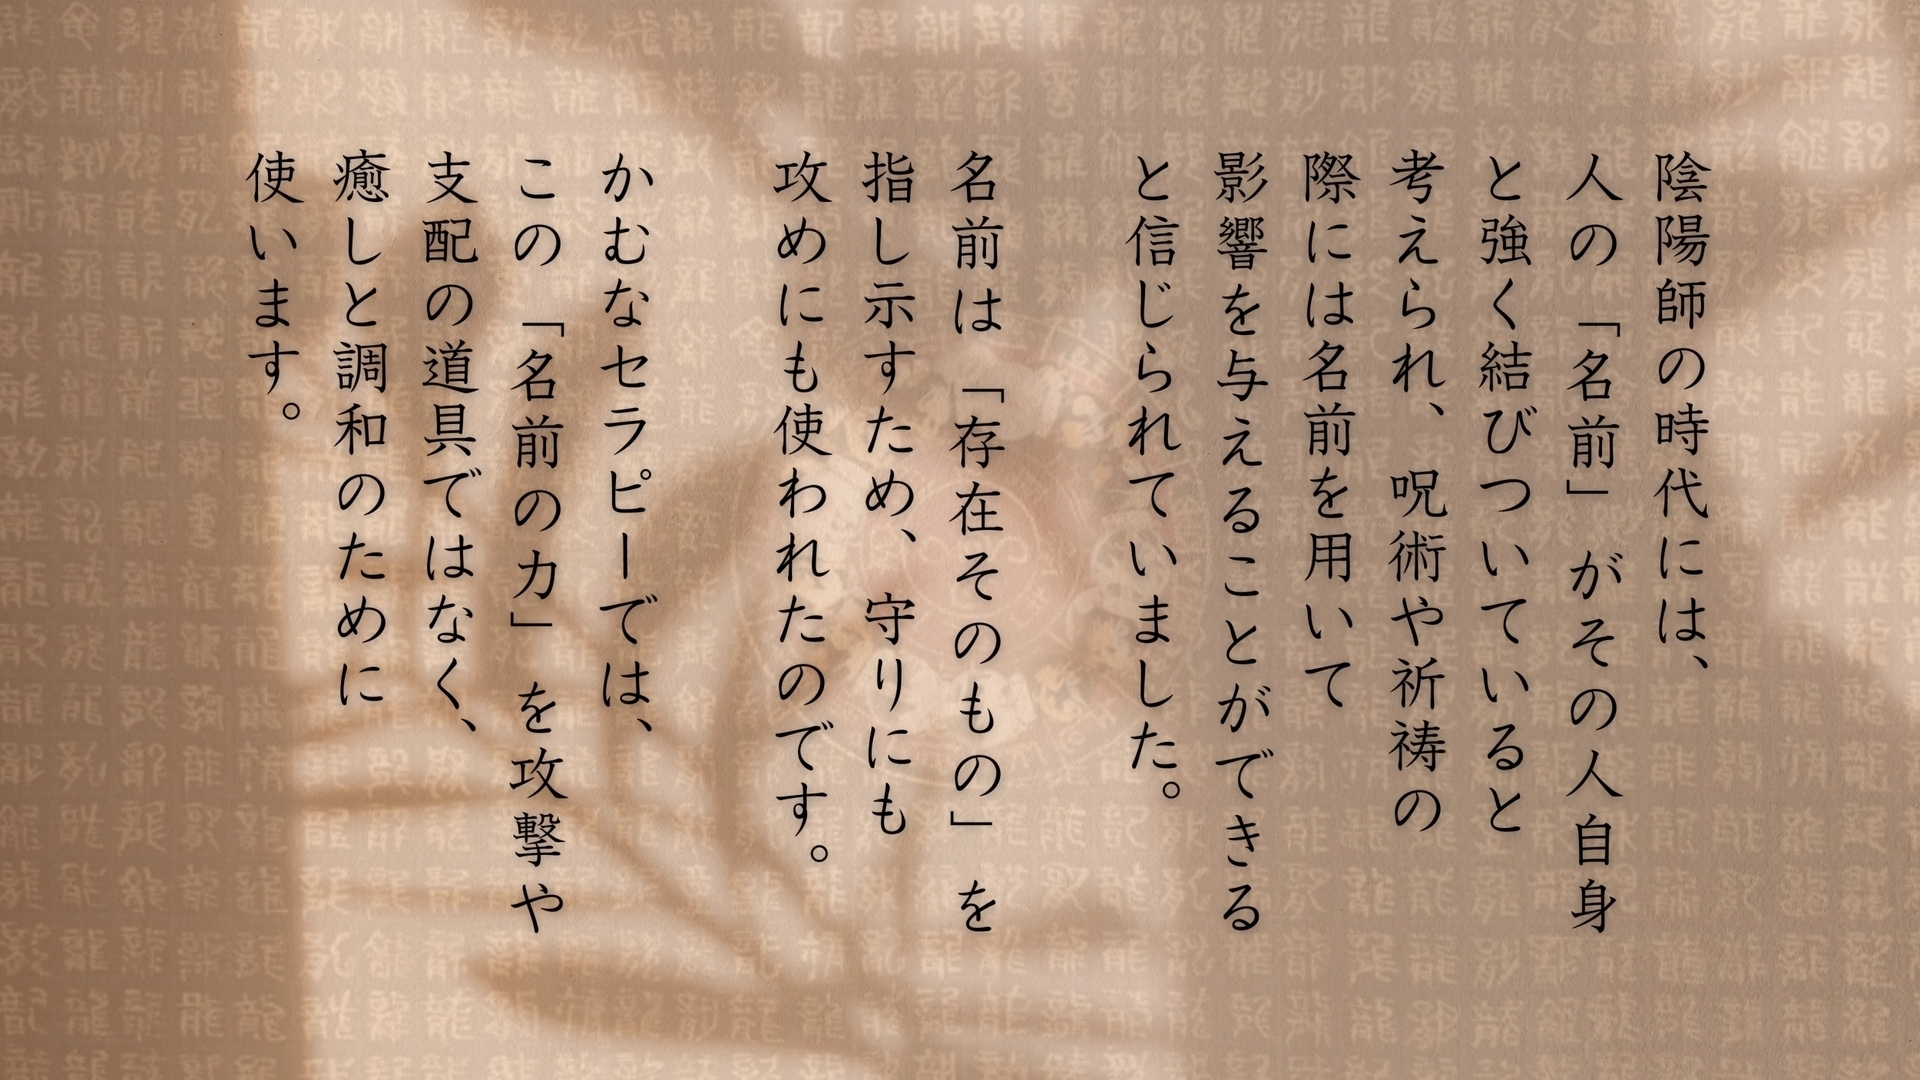 陰陽師の時代には、
人の「名前」がその人自身
と強く結びついていると
考えられ、呪術や祈祷の
際には名前を用いて
影響を与えることができる
と信じられていました。
名前は「存在そのもの」を
指し示すため、守りにも
攻めにも使われたのです。
かむなセラピーでは、
この「名前の力」を攻撃や
支配の道具ではなく、
癒しと調和のために
使います。